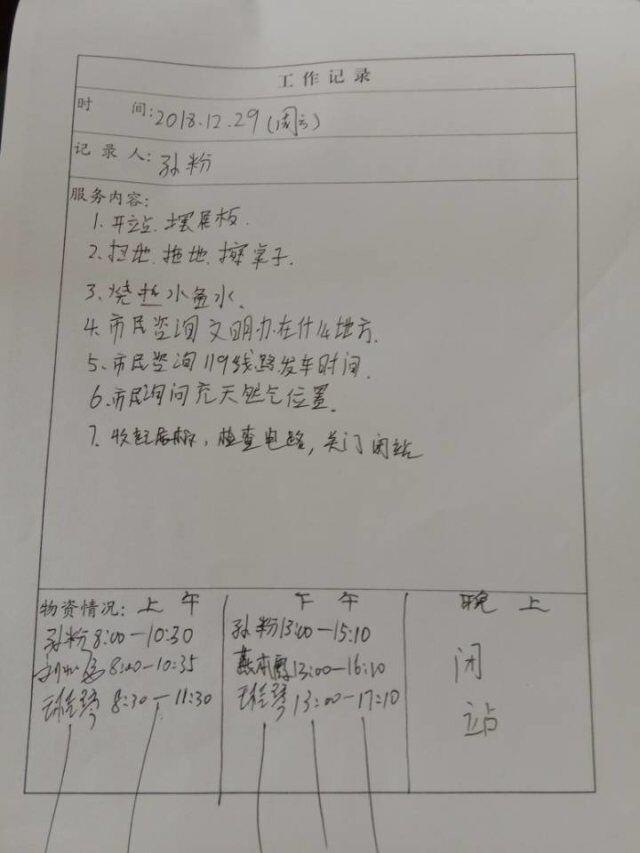 工作记录
时 间:2018.12.29(周六)
记 录 人:孙粉
服务内容:
1.开站.摆展板.
2.扫地.拖地.擦桌子.
3.烧热水叠水.
4.市民咨询文明办在什么地方.
5.市民咨询119线路发车时间.
6.市民询问充天然气位置.
7.收起展板,检查电路,关门闭站
物资情况:上午 下午 晚上
孙粉8:00—10:30 孙粉13:00—15:10
8:00—10:35 13:00—16:10 闭
8:30—11:30 13:00—17:10 站